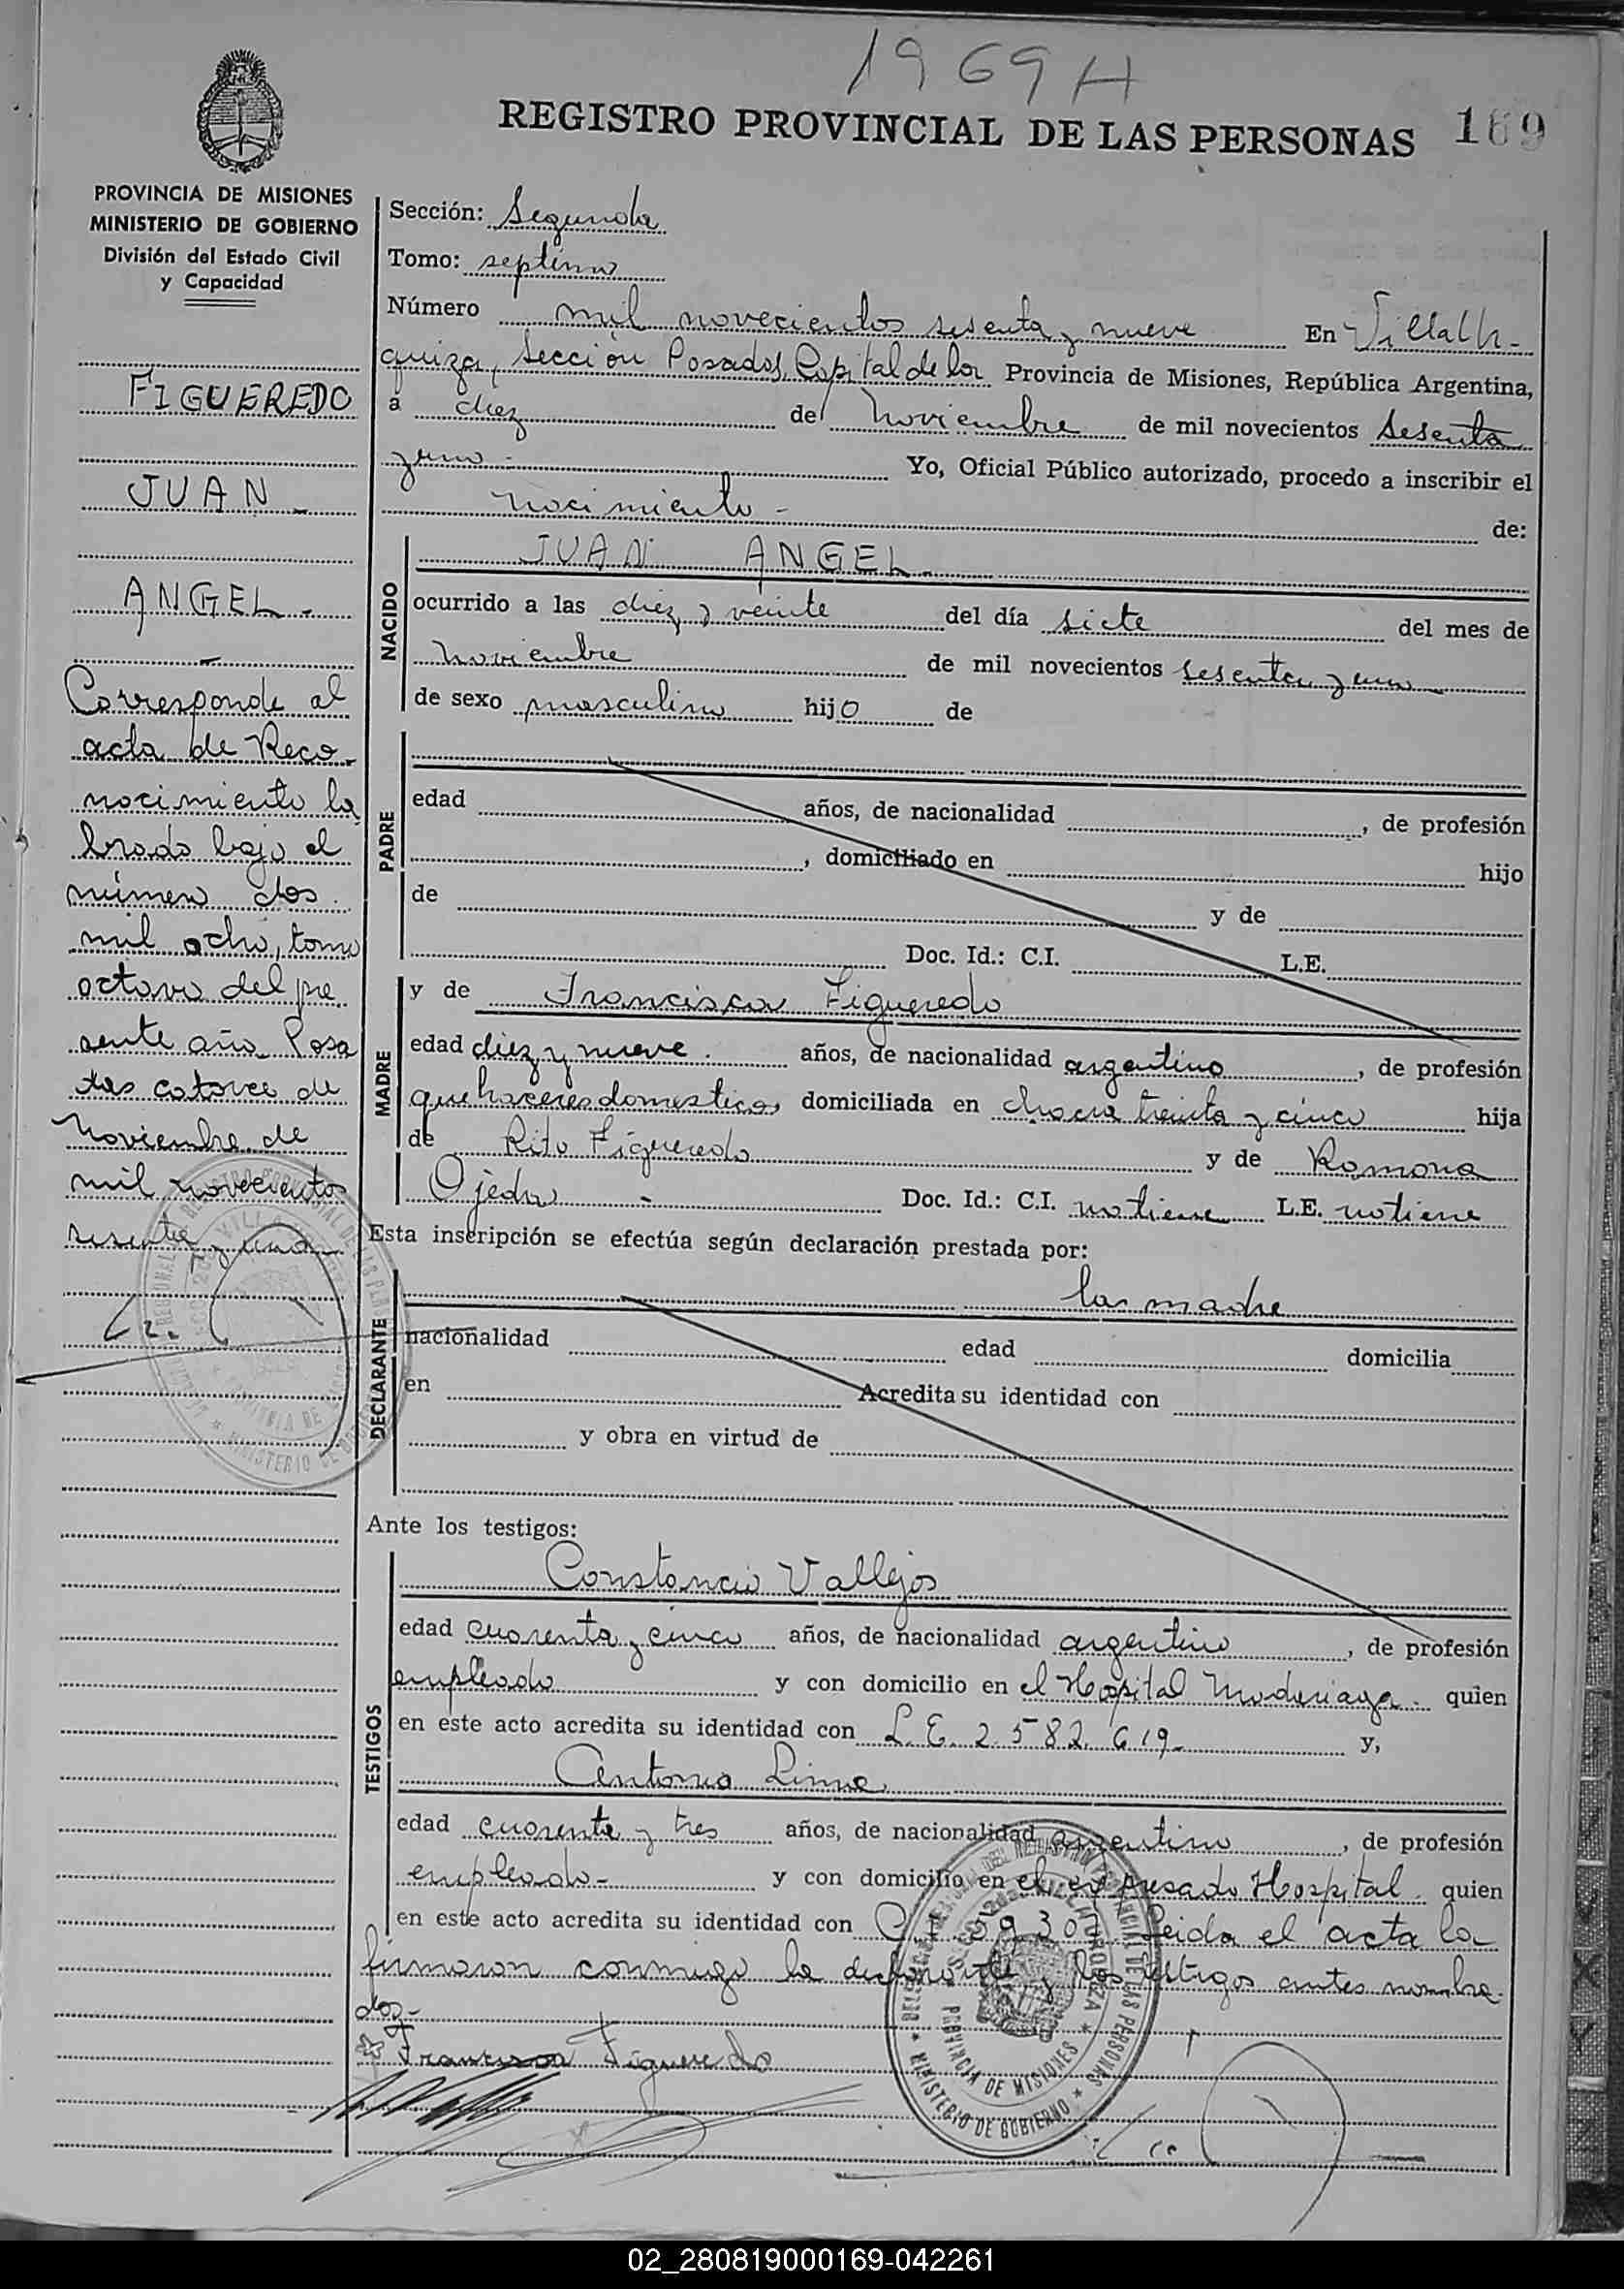 1969 H
REGISTRO PROVINCIAL DE LAS PERSONAS 169
PROVINCIA DE MISIONES
MINISTERIO DE GOBIERNO
División del Estado Civil
y Capacidad
FIGUEREDO
JUAN
ANGEL.-
Corresponde al
acta de Reco-
nocimiento la
brado bajo el
número dos
mil ocho, tomo
octavo del pre
sente año Posa
das catorce de
Noviembre de
mil novecientos
sesenta y uno
Sección: Segunda
Tomo: septimo
Número mil novecientos sesenta y nueve En Villa Ur-
quiza, Sección Posadas, Capital de la Provincia de Misiones, República Argentina,
a diez de Noviembre de mil novecientos sesenta
y uno - Yo, Oficial Público autorizado, procedo a inscribir el
nacimiento - de:
NACIDO
JUAN ANGEL.
ocurrido a las diez y veinte del día siete del mes de
Noviembre de mil novecientos sesenta y uno
de sexo masculino hijo de
PADRE
edad años, de nacionalidad , de profesión
, domiciliado en hijo
de y de
Doc. Id.: C.I. L.E.
MADRE
y de Francisca Figueredo
edad diez y nueve años, de nacionalidad argentina , de profesión
quehaceres domesticos domiciliada en chacra treinta y cinco hija
de Rito Figueredo y de Ramona
Ojeda - Doc. Id.: C.I. no tiene L.E. no tiene
Esta inscripción se efectúa según declaración prestada por:
DECLARANTE
la madre
nacionalidad edad domicilia
en Acredita su identidad con
y obra en virtud de
Ante los testigos:
TESTIGOS
Constancio Vallejos
edad cuarenta y cinco años, de nacionalidad argentino , de profesión
empleado y con domicilio en el Hospital Madariaga quien
en este acto acredita su identidad con L.E. 2.582.619- y,
Antonio Lima
edad cuarenta y tres años, de nacionalidad argentino , de profesión
empleado- y con domicilio en el expresado Hospital quien
en este acto acredita su identidad con Leida el acta la
firmaron conmigo la declarante y los testigos antes nombra
dos-
Francisca Figueredo
PROVINCIA DE MISIONES
MINISTERIO DE GOBIERNO
02_280819000169-042261